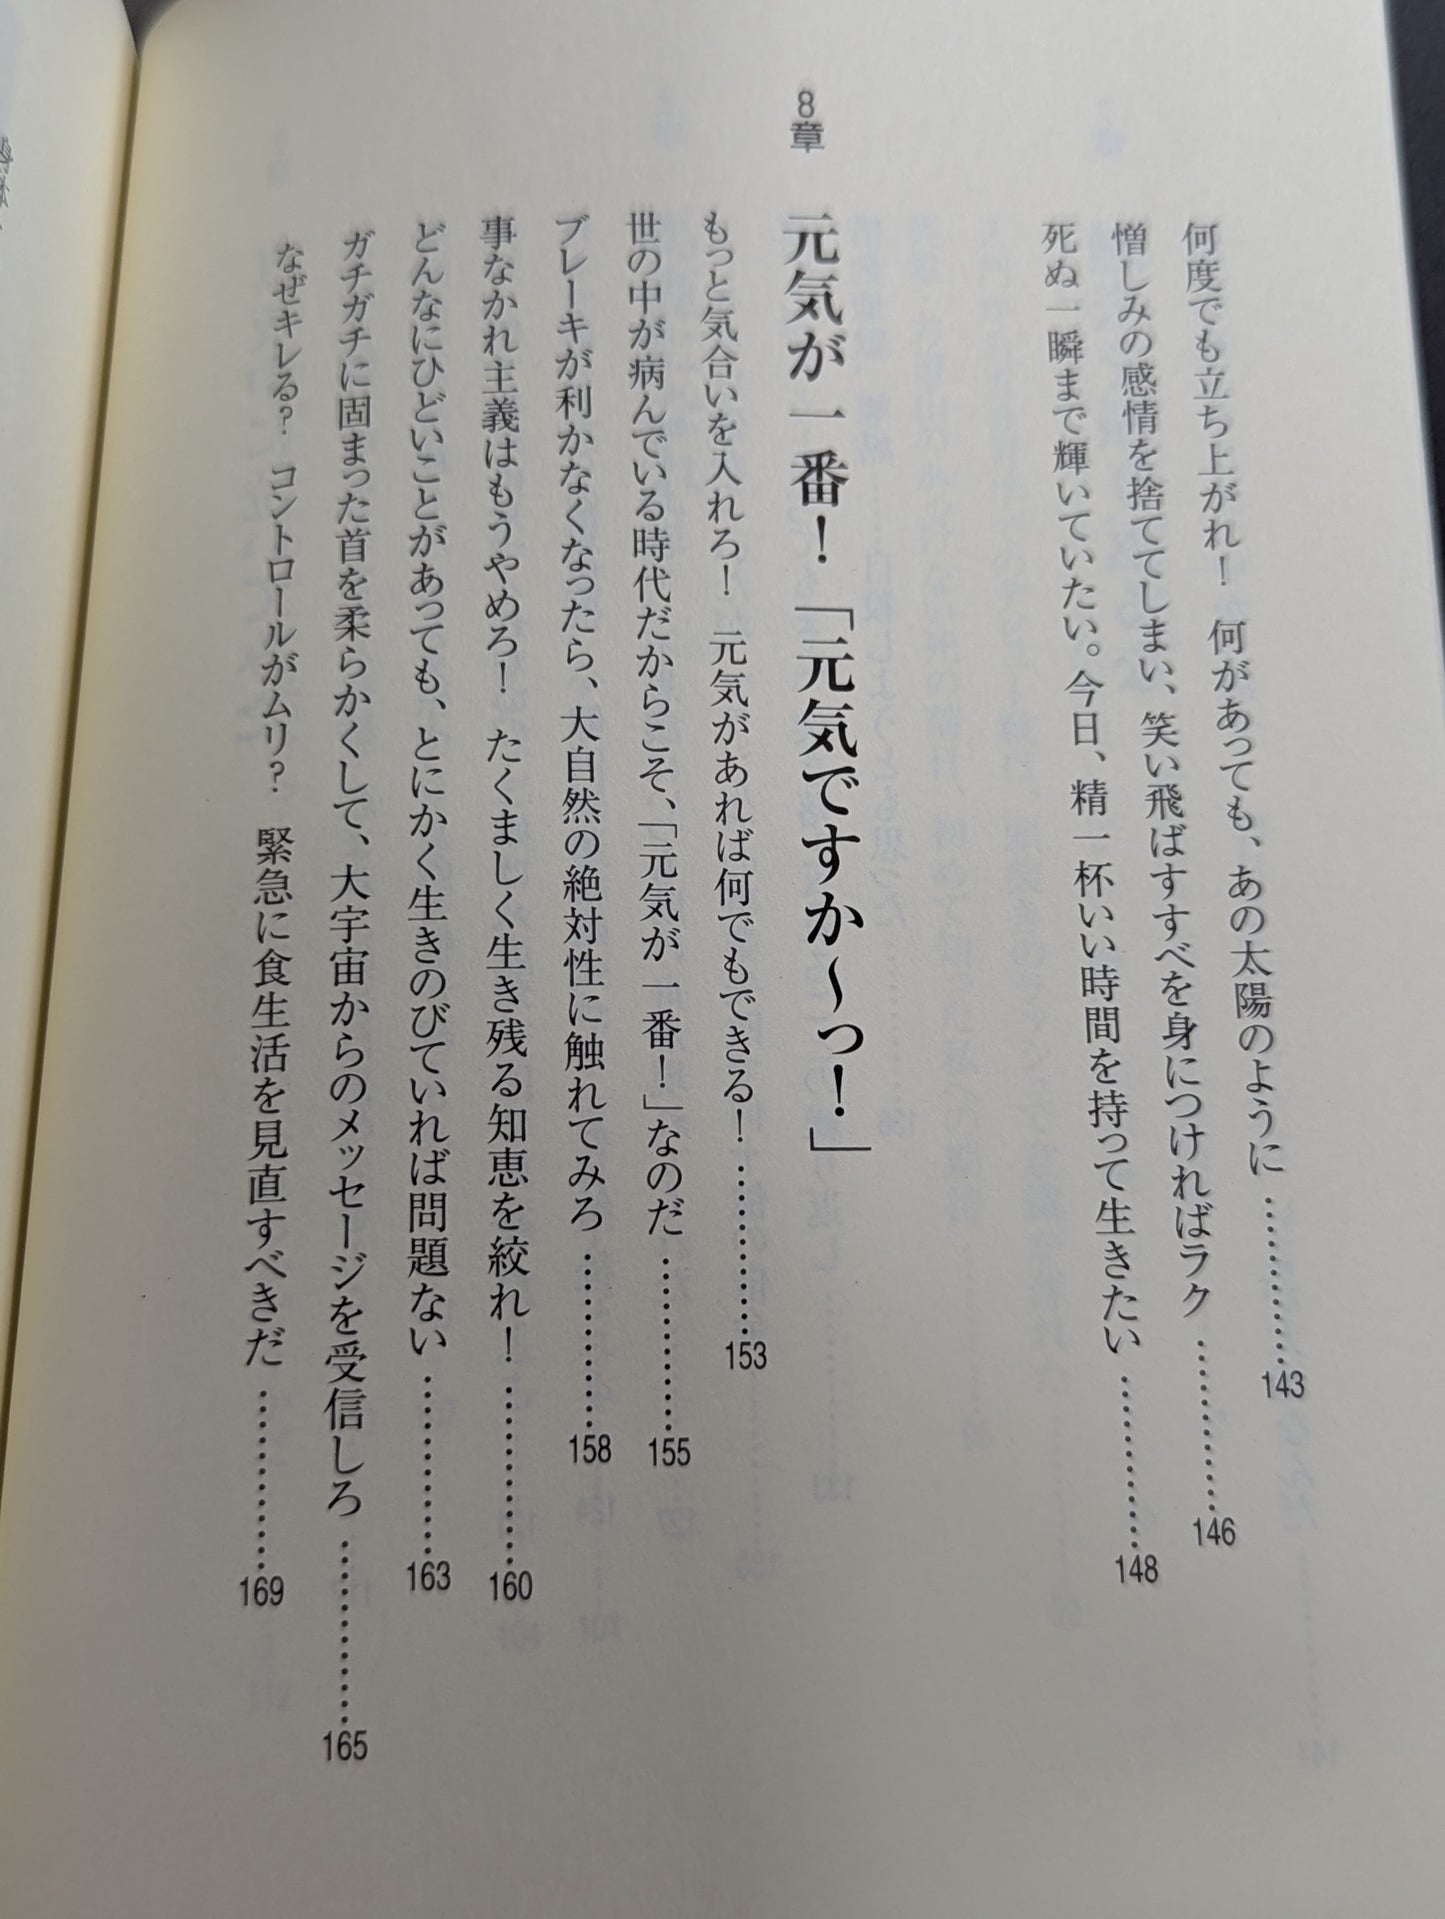 何度でも立ち上がれ！　何があっても、あの太陽のように…………143
憎しみの感情を捨ててしまい、笑い飛ばすすべを身につければラク…………146
死ぬ一瞬まで輝いていたい。今日、精一杯いい時間を持って生きたい…………148
8章　元気が一番！「元気ですか〜っ！」
もっと気合いを入れろ！　元気があれば何でもできる！…………153
世の中が病んでいる時代だからこそ、「元気が一番！」なのだ…………155
ブレーキが利かなくなったら、大自然の絶対性に触れてみろ…………158
事なかれ主義はもうやめろ！　たくましく生き残る知恵を絞れ！…………160
どんなにひどいことがあっても、とにかく生きのびていれば問題ない…………163
ガチガチに固まった首を柔らかくして、大宇宙からのメッセージを受信しろ…………165
なぜキレる？　コントロールがムリ？　緊急に食生活を見直すべきだ…………169